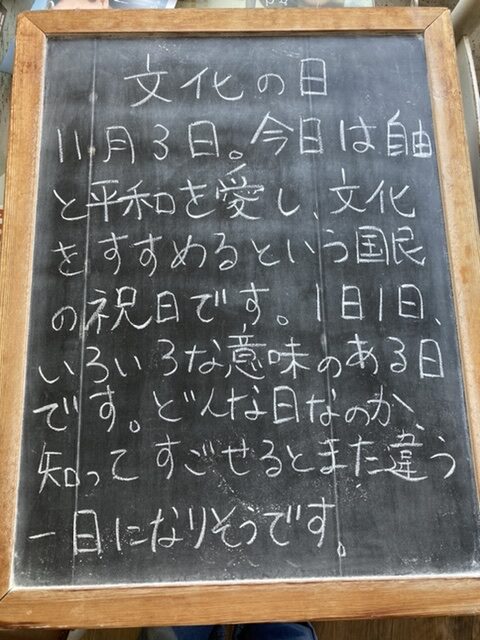 文化の日
11月3日。今日は自由
と平和を愛し、文化
をすすめるという国民
の祝日です。1日1日、
いろいろな意味のある日
です。どんな日なのか、
知ってすごせるとまた違う
一日になりそうです。